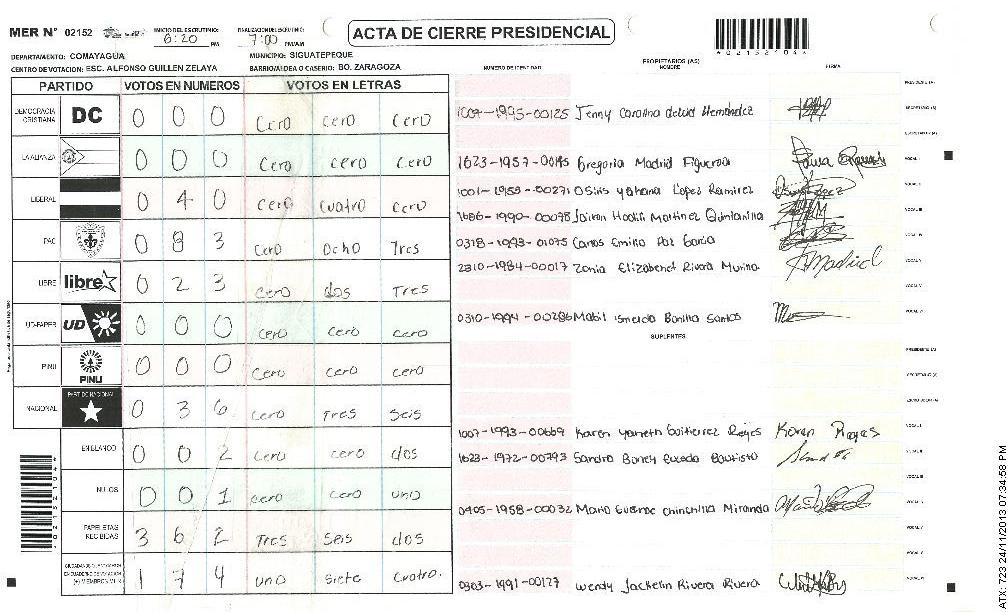 MER N° 02152 INICIO DEL ESCRUTINIO: 6:20 PM FINALIZACION ESCRUTINIO: 7:00 PM/AM ACTA DE CIERRE PRESIDENCIAL
*02152104*
DEPARTAMENTO: COMAYAGUA MUNICIPIO: SIGUATEPEQUE
CENTRO DE VOTACION: ESC. ALFONSO GUILLEN ZELAYA BARRIO/ALDEA O CASERIO: BO. ZARAGOZA
NUMERO DE IDENTIDAD PROPIETARIOS (AS) NOMBRE FIRMA
PARTIDO VOTOS EN NUMEROS VOTOS EN LETRAS
DEMOCRACIA CRISTIANA DC 0 0 0 Cero cero cero
LA ALIANZA 0 0 0 Cero cero cero
LIBERAL 0 4 0 cero cuatro cero
PAC 0 8 3 cero ocho Tres
LIBRE libre 0 2 3 cero dos Tres
UD-FAPER UD 0 0 0 cero cero cero
PINU PINU 0 0 0 cero cero cero
NACIONAL PARTIDO NACIONAL 0 3 6 cero Tres seis
EN BLANCO 0 0 2 cero cero dos
NULOS 0 0 1 cero cero uno
PAPELETAS RECIBIDAS 3 6 2 Tres seis dos
1 7 4 uno siete cuatro.
PRESIDENTE (A)
1009-1995-00125 Jenny Carolina Hernandez SECRETARIO (A)
ESCRUTADOR (A)
1623-1957-00145 Gregoria Madrid Figueroa VOCAL I
1001-1955-00271 Osiris yohana Lopez Ramirez VOCAL II
1686-1990-00078 Martinez Quintanilla VOCAL III
0318-1993-01075 Carlos Emilio Paz Garcia VOCAL IV
2310-1984-00017 Zonia Elizabenet Rivera Murino VOCAL V
VOCAL VI
0310-1994-00286 Mabil ismelda Bonilla Santos VOCAL VII
SUPLENTES
PRESIDENTE (A)
SECRETARIO (A)
ESCRUTADOR (A)
1007-1993-00669 Karen yaneth Guitierrez Reyes Karen Reyes VOCAL I
1623-1972-00793 Sandra Bautista VOCAL II
VOCAL III
0405-1958-00032 Mario chinchilla Miranda VOCAL IV
VOCAL V
0303-1991-00127 Wendy Jackelin Rivera Rivera
ATX: 723 24/11/2013 07:34:58 PM